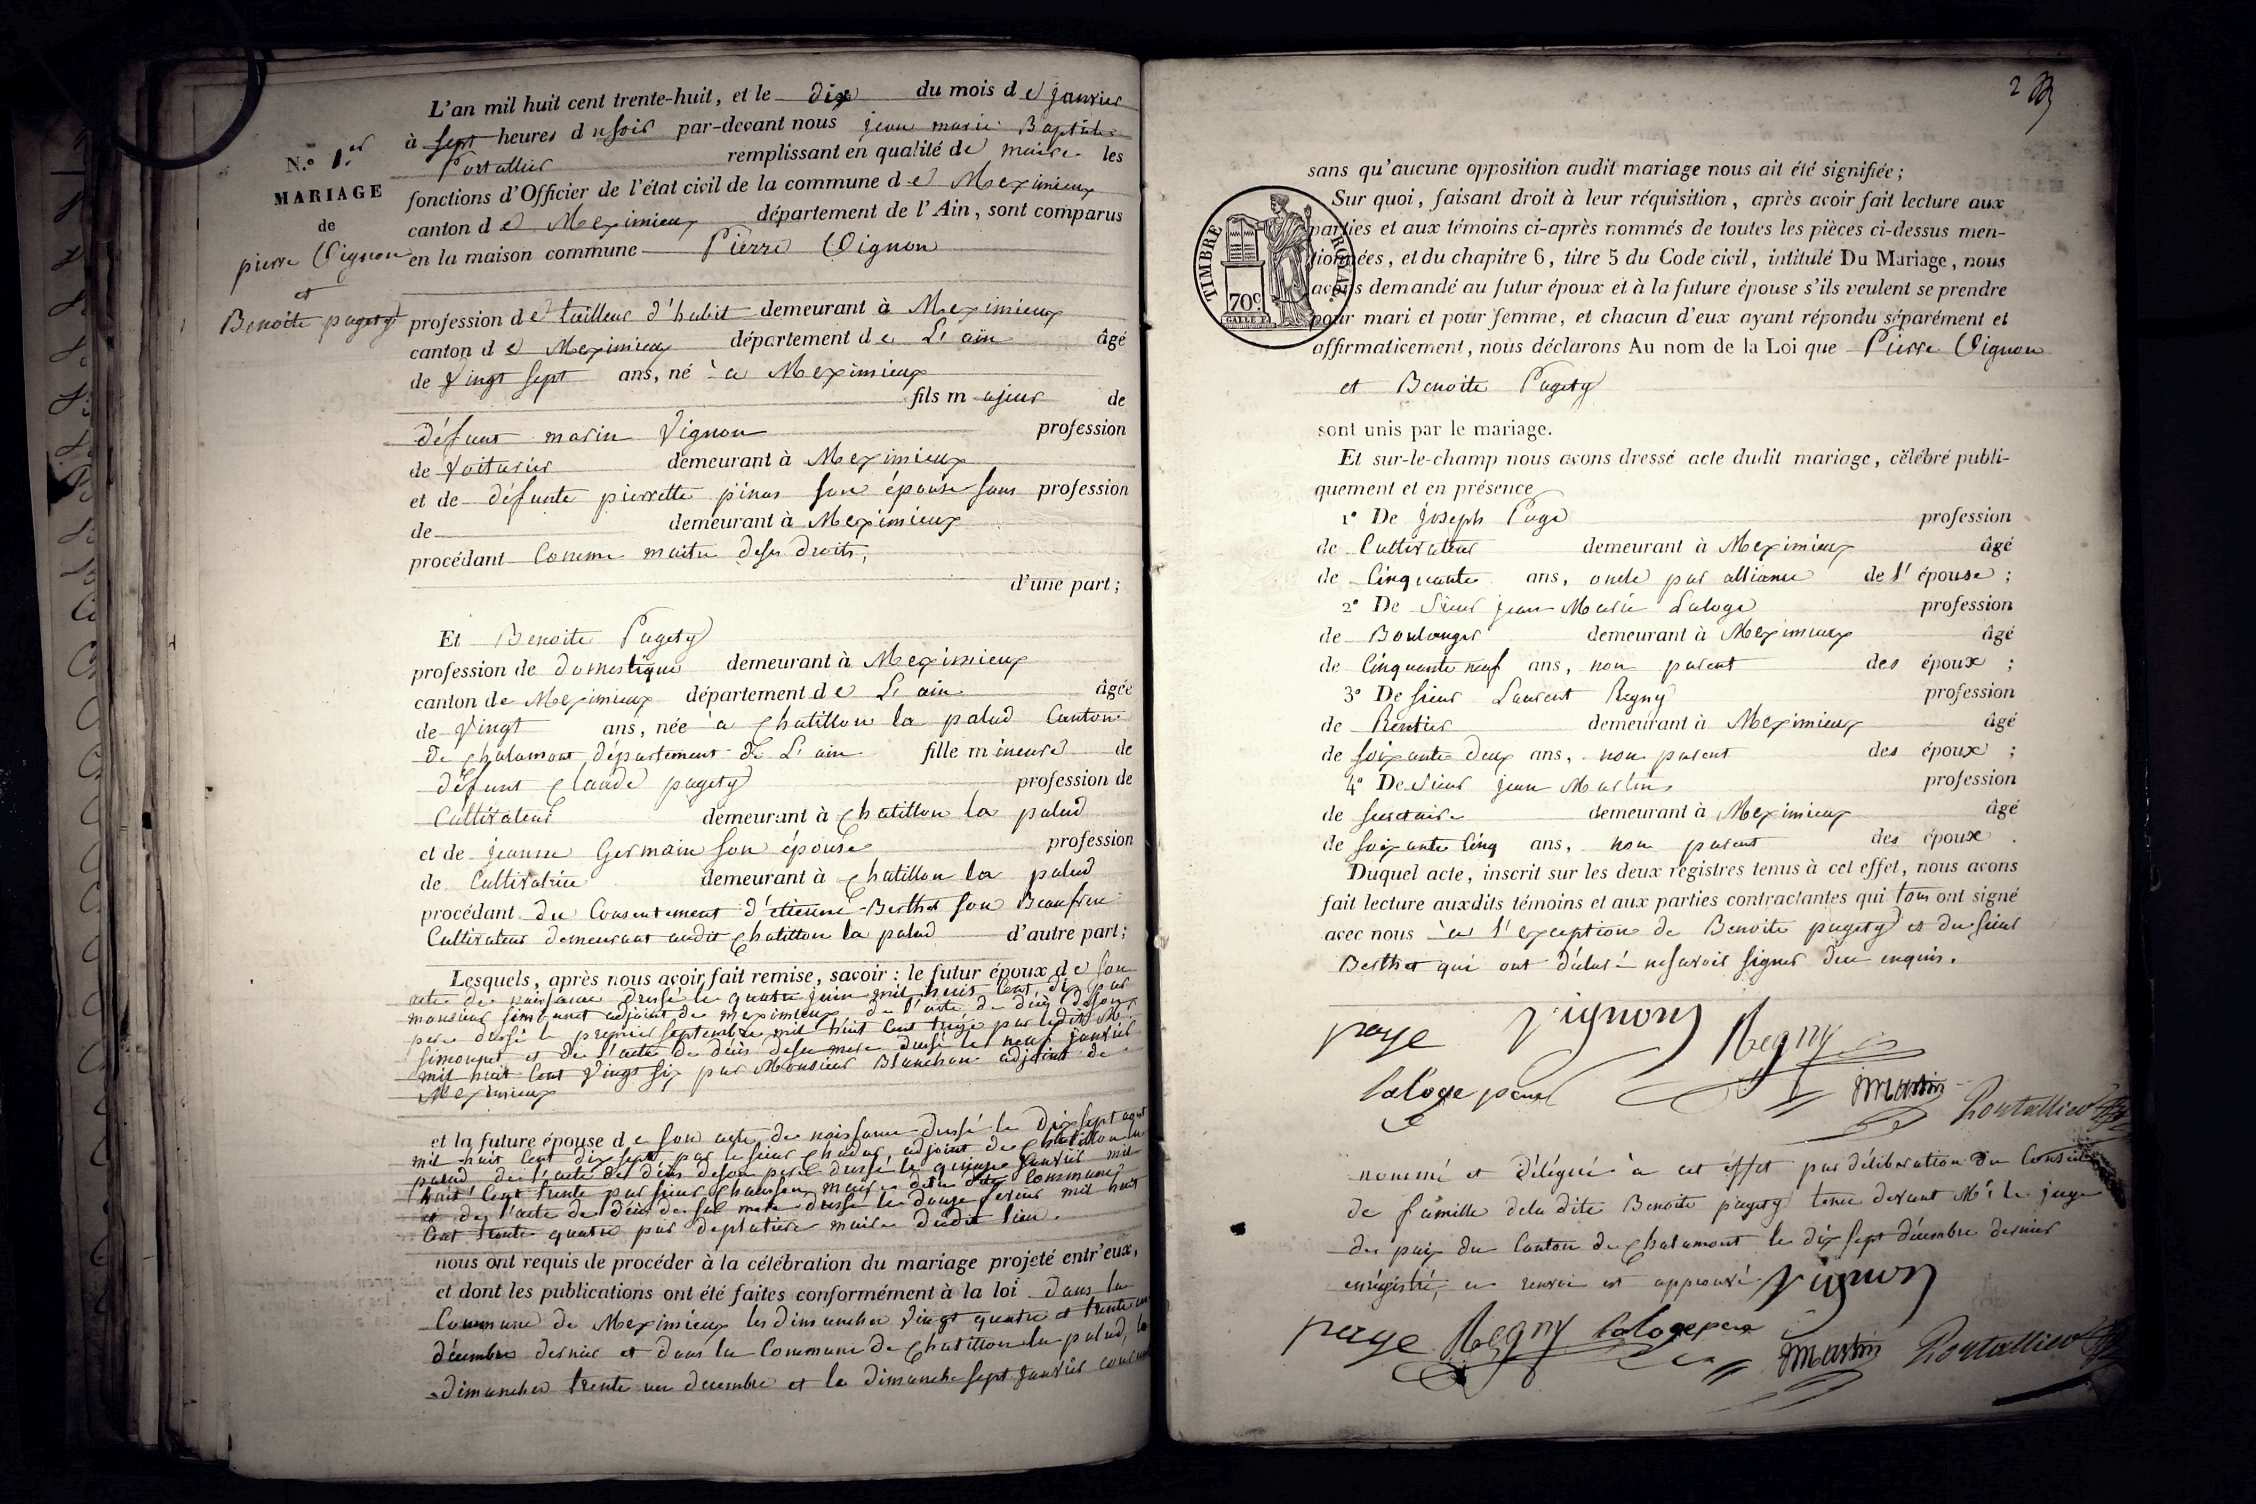 L'an mil huit cent trente-huit, et le dix du mois de janvier
à sept heures du soir par-devant nous jean marie Baptiste
Portallier remplissant en qualité de maire les
fonctions d'Officier de l'état civil de la commune de Meximieux
canton de Meximieux département de l'Ain, sont comparus
en la maison commune Pierre Vignon
N.o 1.er
MARIAGE
de
pierre Vignon
et
Benoite pagety
profession de tailleur d'habit demeurant à Meximieux
canton de Meximieux département de L'ain âgé
de Vingt sept ans, né à Meximieux
fils majeur de
défunt marin Vignon profession
de Voiturier demeurant à Meximieux
et de défunte pierrette pinas son épouse sans profession
de demeurant à Meximieux
procédant Comme maitre deses droits,
d'une part;
Et Benoite Pagety
profession de domestique demeurant à Meximieux
canton de Meximieux département de L'ain âgée
de Vingt ans, née à Chatillon la palud Canton
de Chalamont département de L'ain fille mineure de
défunt Claude pagety profession de
Cultivateur demeurant à Chatillon la palud
et de jeanne Germain son épouse profession
de Cultivatrice demeurant à Chatillon la palud
procédant du Consentement d'étienne Berthet son Beaufrere
Cultivateur demeurant audit Chatillon la palud d'autre part;
Lesquels, après nous avoir fait remise, savoir : le futur époux de son
acte de naissance dressé le quatre juin mil huit Cent dix par
monsieur simonnet adjoint de meximieux, de l'acte de décès deson
pere dressé le premier septembre mil huit Cent treize par ledit Mr
simonnet et de l'acte de décès desa mere dressé le neuf janvier
mil huit Cent Vingt six par Monsieur Blanchon adjoint de
Meximieux
et la future épouse de son acte de naissance dressé le Dix sept aout
mil huit Cent dix sept par le sieur adjoint de Chatillon la
palud de l'acte de décès deson pere dressé le quinze janvier mil
huit Cent trente par sieur maire de la dite Commune
et de l'acte de décès de sa mere dressé le douze fevrier mil huit
Cent trente quatre par deplatiere maire dudit lieu.
nous ont requis de procéder à la célébration du mariage projeté entr'eux,
et dont les publications ont été faites conformément à la loi dans la
Commune de Meximieux les dimanches Vingt quatre et trente un
décembre dernier et dans la Commune de Chatillon la palud, les
dimanches trente un decembre et le dimanche sept janvier courant
2
TIMBRE ROYAL
70c
GALLE F.
sans qu'aucune opposition audit mariage nous ait été signifiée;
Sur quoi, faisant droit à leur réquisition, après avoir fait lecture aux
parties et aux témoins ci-après nommés de toutes les pièces ci-dessus men-
tionnées, et du chapitre 6, titre 5 du Code civil, intitulé Du Mariage, nous
avons demandé au futur époux et à la future épouse s'ils veulent se prendre
pour mari et pour femme, et chacun d'eux ayant répondu séparément et
affirmativement, nous déclarons Au nom de la Loi que Pierre Vignon
et Benoite Pagety
sont unis par le mariage.
Et sur-le-champ nous avons dressé acte dudit mariage, célébré publi-
quement et en présence
1° De joseph Page profession
de Cultivateur demeurant à Meximieux âgé
de Cinquante ans, oncle par alliance de l'épouse ;
2° De Sieur jean Marie Laloge profession
de Boulanger demeurant à Meximieux âgé
de Cinquante neuf ans, non parent des époux ;
3° De sieur Laurent Regny profession
de Rentier demeurant à Meximieux âgé
de soixante deux ans, non parent des époux ;
4° De Sieur jean Martin profession
de secretaire demeurant à Meximieux âgé
de soixante Cinq ans, non parent des époux .
Duquel acte, inscrit sur les deux registres tenus à cet effet, nous avons
fait lecture auxdits témoins et aux parties contractantes qui tous ont signé
avec nous à l'exception de Benoite pagety et du sieur
Berthet qui ont déclaré nesavoir signer deu enquis.
page Vignon Regny
laloge pere JMartin Portallier
nommé et délégué à cet effet par délibération du Conseil
de famille dela dite Benoite pagety tenu devant Mr le juge
de paix du Canton de Chalamont le dix sept décembre dernier
enrégistré, ce renvoi est approuvé. Vignon
page Regny laloge pere
JMartin Portallier